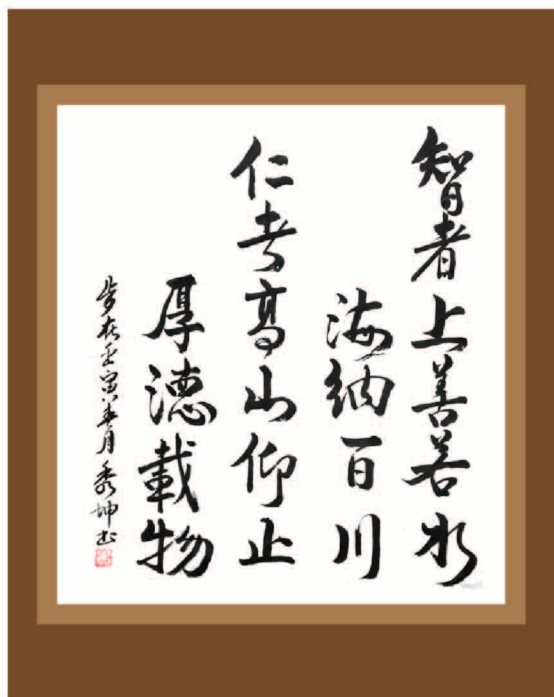 智者上善若水
海纳百川
仁者高山仰止
厚德载物
岁在壬寅春月秀坤书